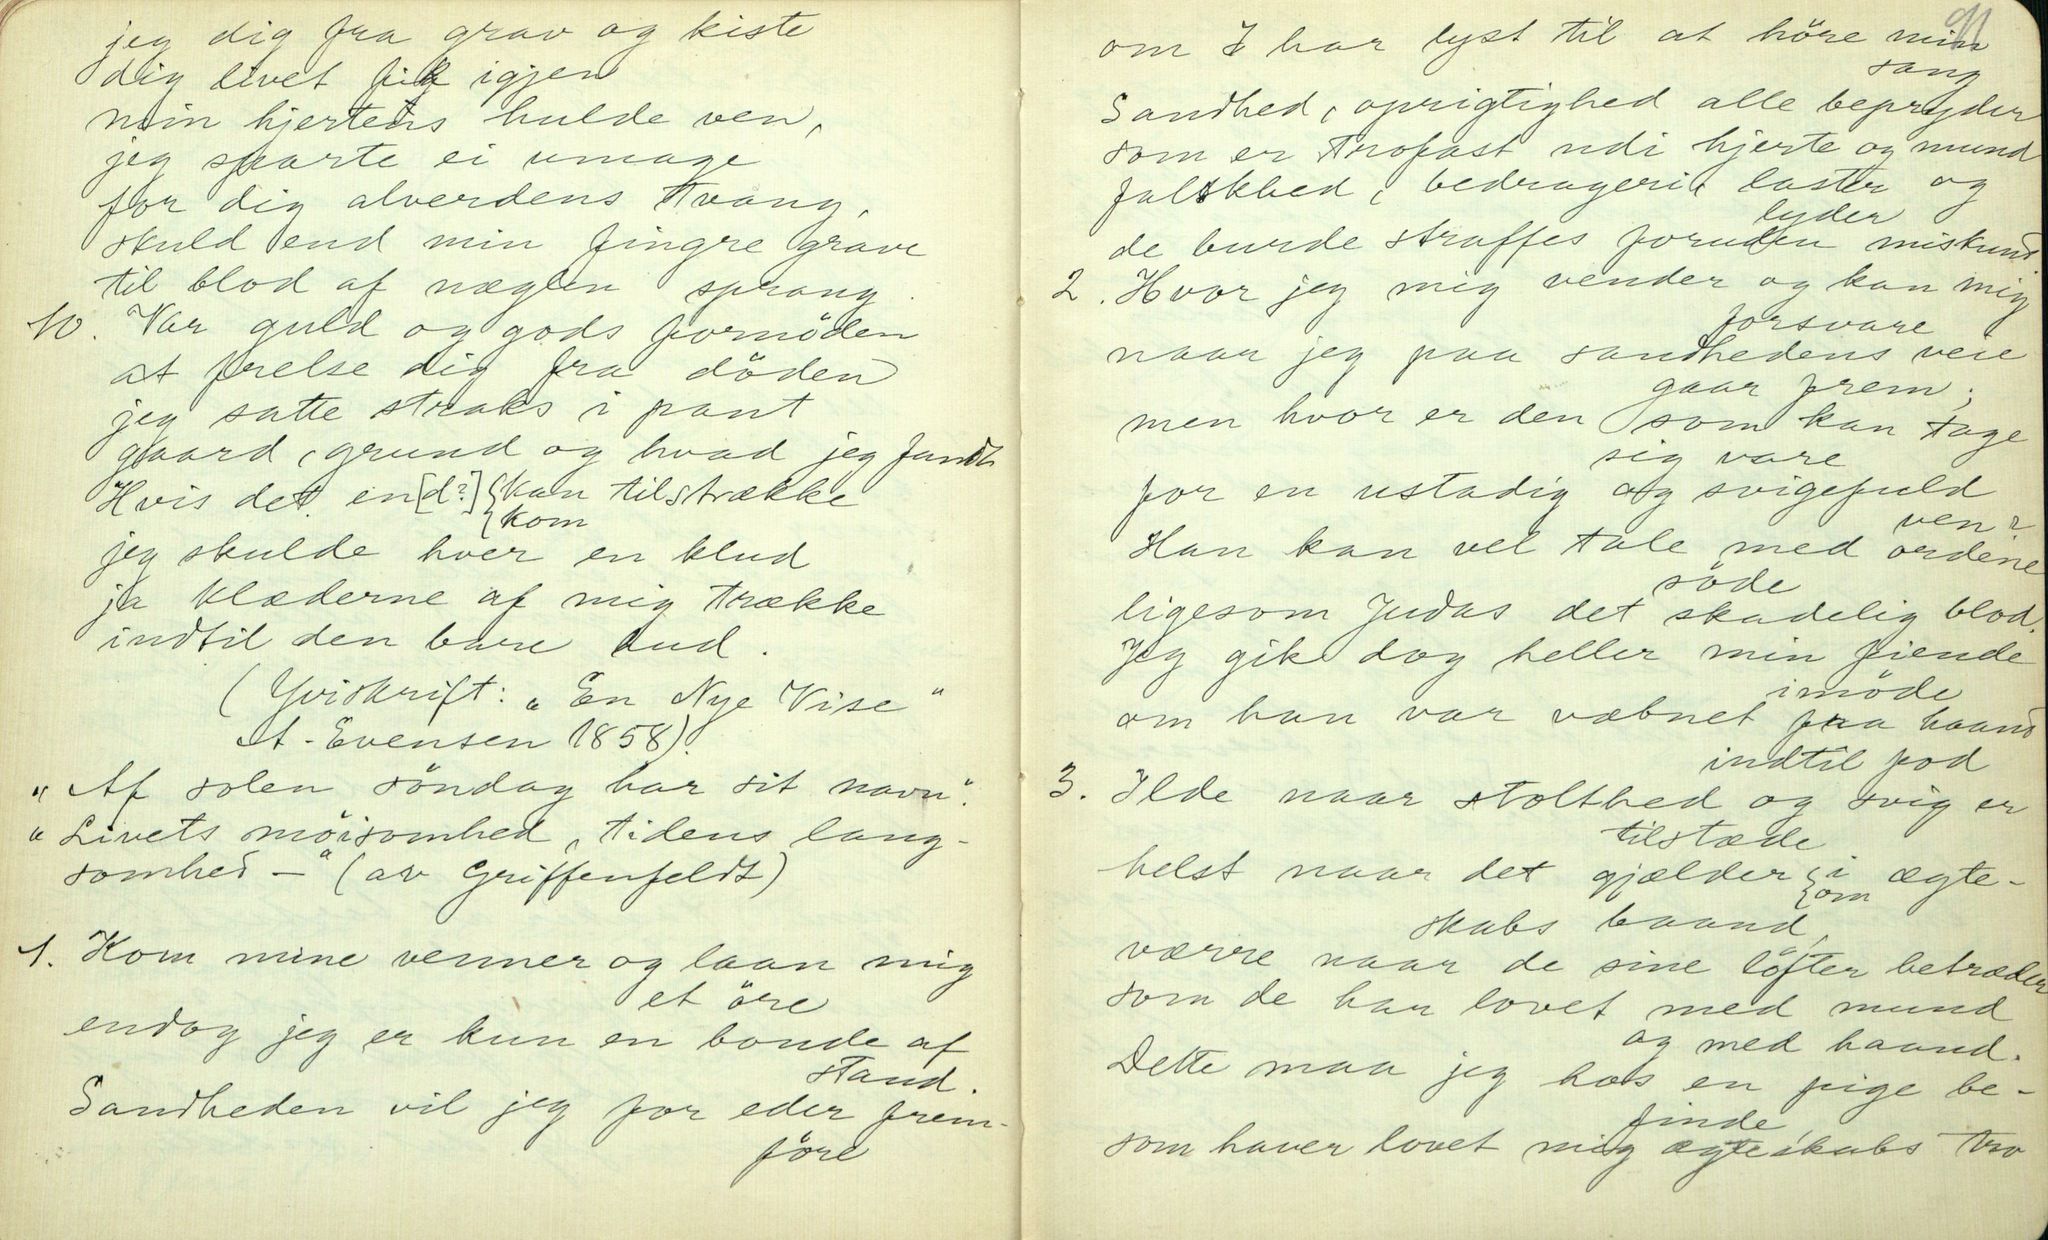 jeg dig fra grav og kiste
dig livet fik igjen
min hjertens hulde ven,
jeg sparte ei umage
for dig alverdens tvang,
skuld end min fingre grave
til blod af neglen sprang.
10. Var guld og gods formöden
at frelse dig fra döden
jeg satte straks i pant
gaard, grund og hvad jeg fandt
Hvis det en[d?] {kan tilstrække
{kom
jeg skulde hver en klud
ja klæderne af mig trække
indtil den bare hud.
(Gviskrift: „En Nye Vise"
A. Evensen 1858).
„Af solen söndag har sit navn".
„Livets möisomhed, tidens lang-
somhed –" (av Griffenfeldt)
1. Kom mine venner og laan mig
et öre
endog jeg er kun en bonde af
stand.
Sandheden vil jeg for eder frem-
före
91
om I har lyst til at höre min
sang
Sandhed, oprigtighed alle bepryder
som er trofast udi hjerte og mund
falskhed, bedrageri, laster og
lyder
de burde straffes foruden miskund
2. Hvor jeg mig vender og kan mig
forsvare
naar jeg paa sandhedens veie
gaar frem;
men hvor er den som kan tage
sig vare
for en ustadig og svigefuld
ven?
Han kan vel tale med ordene
söde
ligesom Judas det skadelig blod.
Jeg gik dog heller min fiende
imöde
om han var væbnet paa haand
indtil fod
3. Ilde naar stolthed og svig er
tilstæde
helst naar det gjælder {i ægte-
{om
skabs baand,
værre naar de sine löfter betræder
som de har lovet med mund
og med haand.
Dette maa jeg hos en pige be-
finde,
som haver lovet mig ægteskabs tro